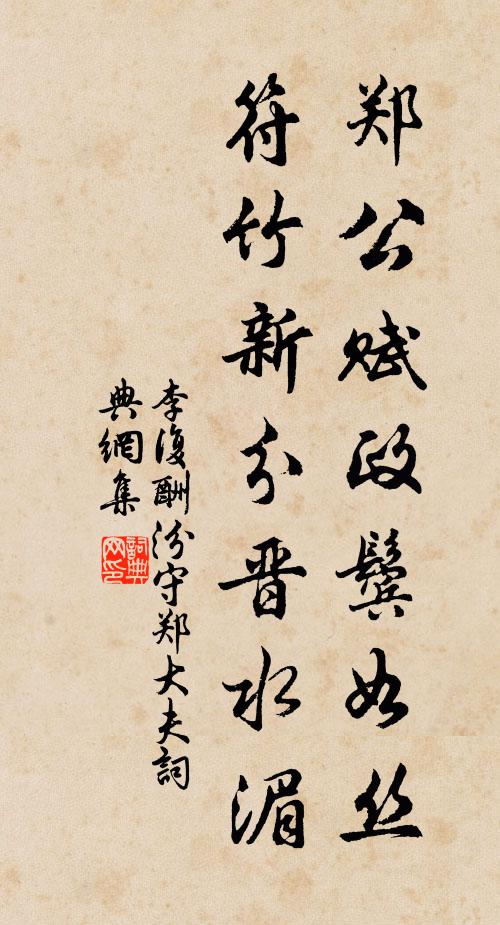 郑公赋政鬓如丝
符竹新分晋水湄
李復酬汾守郑大夫詞
典網集
詞典網印